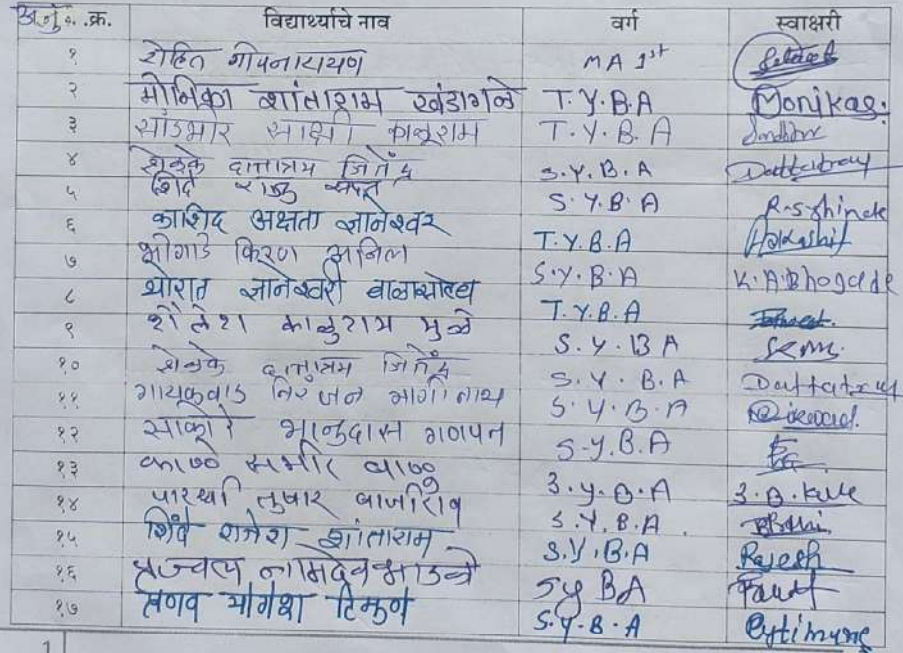 अनु. क्र. विद्यार्थ्याचे नाव वर्ग स्वाक्षरी
१ रोहित गोपनारायण MA 1st
२ मोनिका शांताराम खंडागळे T.Y.B.A Monikas.
३ सांडभोर साक्षी काळूराम T.Y.B.A
४ शेळके दत्तात्रय जितेंद्र S.Y.B.A Dattatray
५ शिंदे राजू S.Y.B.A R.S.Shinde
६ काशिद अक्षता ज्ञानेश्वर T.Y.B.A
७ भोगाडे किरण अनिल S.Y.B.A K.A.Bhogade
८ थोरात ज्ञानेश्वरी बाळासाहेब T.Y.B.A
९ शैलेश काळुराम मुळे S.Y.BA
१० शेळके दत्तात्रय जितेंद्र S.Y.B.A Dattatray
११ गायकवाड निरंजन S.Y.B.A
१२ साकोरे भानुदास गणपत S.Y.B.A
१३ काळे समीर बाळू S.Y.B.A
१४ पारधी तुषार बाजीराव S.Y.B.A
१५ शिंदे राजेश शांताराम S.Y.B.A Rajesh
१६ प्रज्वल नामदेव SYBA
१७ प्रणव योगेश टिमुणे S.Y.B.A
1